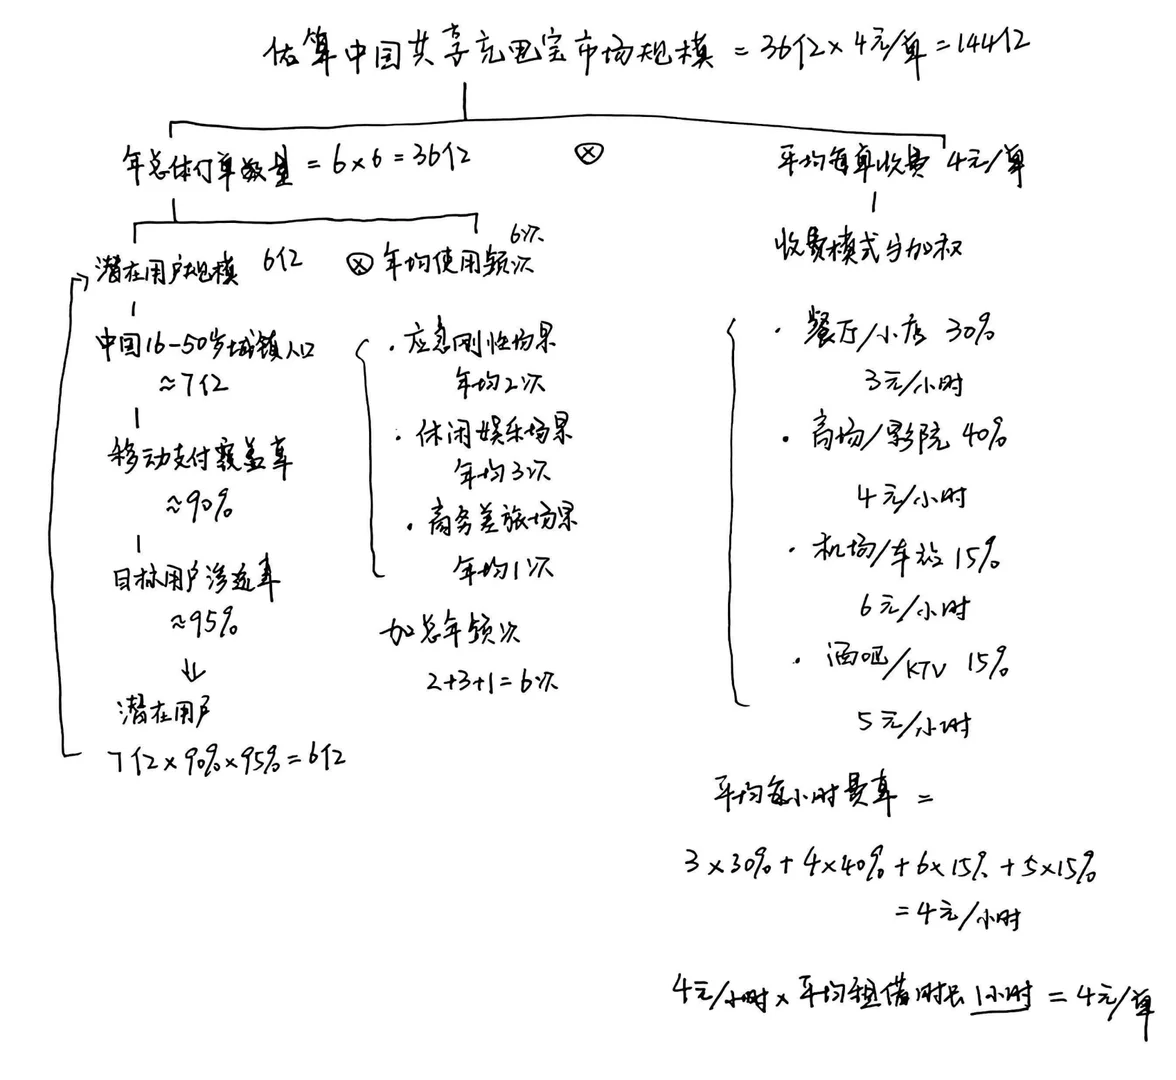 估算中国共享充电宝市场规模 = 36亿 × 4元/单 = 144亿
年总体订单数量 = 6×6 = 36亿
⊗
平均每单收费 4元/单
潜在用户规模 6亿
⊗ 年均使用频次 6次
中国16-50岁城镇人口
≈7亿
移动支付覆盖率
≈90%
目标用户渗透率
≈95%
潜在用户
7亿×90%×95%=6亿
· 应急刚性场景
年均2次
· 休闲娱乐场景
年均3次
· 商务差旅场景
年均1次
加总年频次
2+3+1=6次
收费模式与加权
· 餐厅/小店 30%
3元/小时
· 商场/影院 40%
4元/小时
· 机场/车站 15%
6元/小时
· 酒吧/KTV 15%
5元/小时
平均每小时费率 =
3×30%+4×40%+6×15%+5×15%
=4元/小时
4元/小时×平均租借时长1小时=4元/单